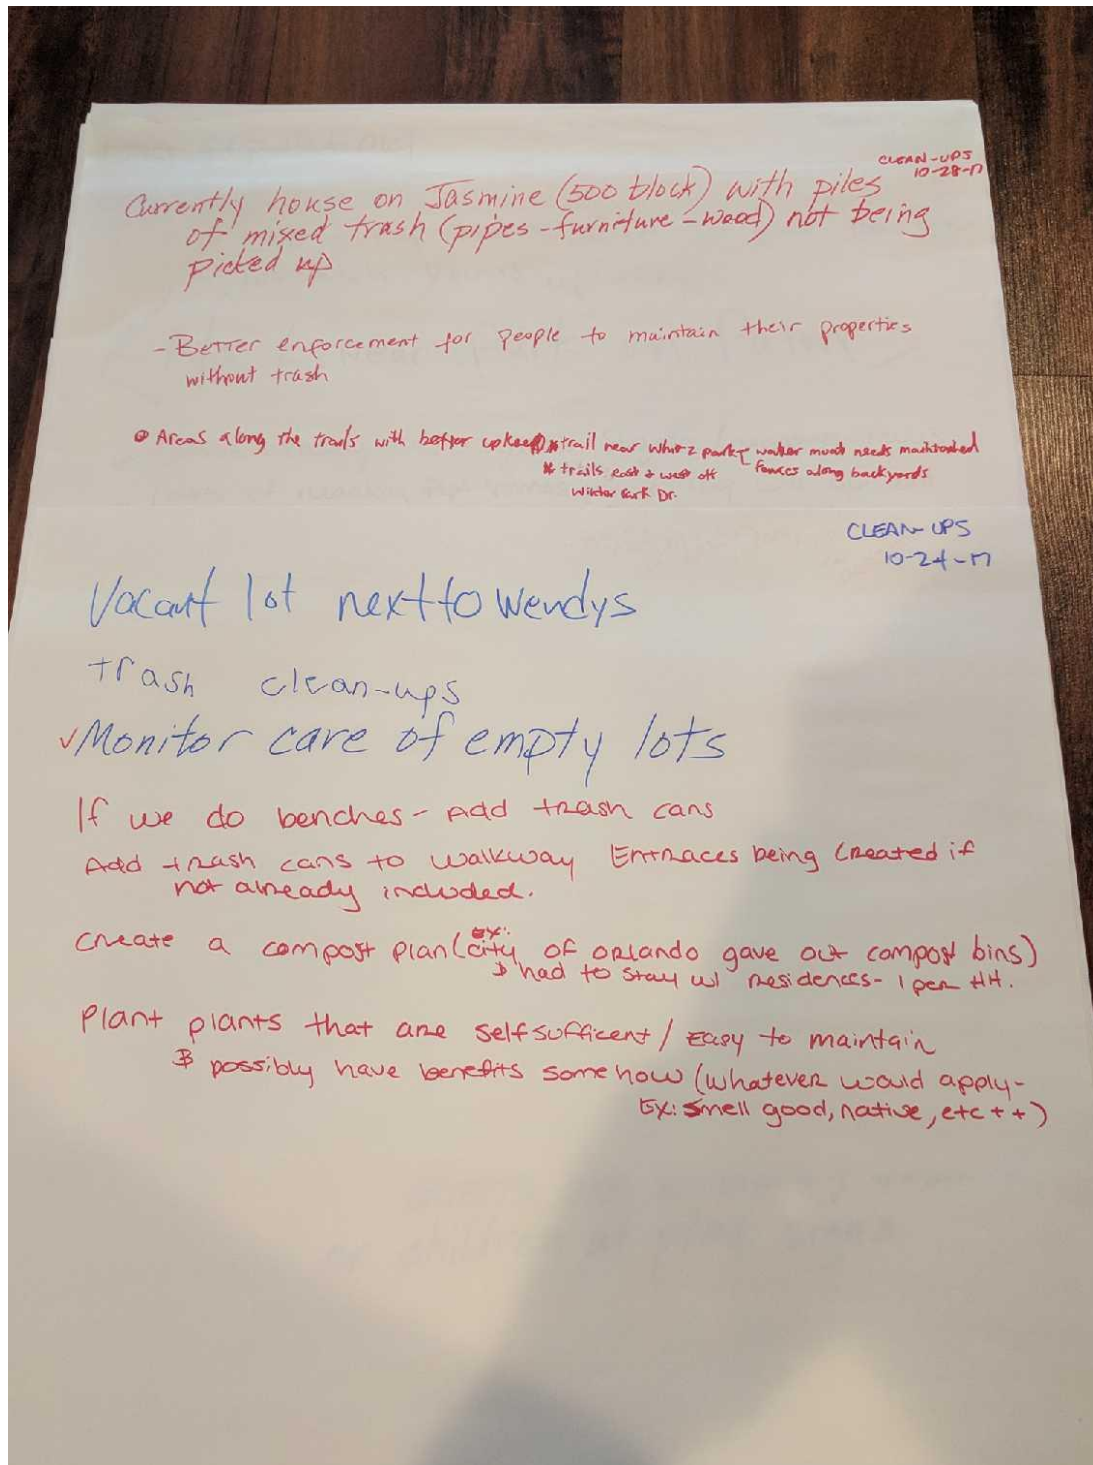 CLEAN-UPS
10-28-17
Currently house on Jasmine (500 block) with piles
of mixed trash (pipes - furniture - wood) not being
picked up
- Better enforcement for people to maintain their properties
without trash
Areas along the trails with better upkeep * trail near park walker needs
* trails east & west off Fences along backyards
Winter Park Dr.
CLEAN-UPS
10-24-17
Vacant lot next to Wendys
trash clean-ups
✓ Monitor care of empty lots
If we do benches - Add trash cans
Add trash cans to walkway Entraces being created if
not already included.
Create a compost plan (ex: city of orlando gave out compost bins)
had to stay w/ residences - 1 per HH.
Plant plants that are selfsufficent / Easy to maintain
& possibly have benefits somehow (whatever would apply -
Ex: smell good, native, etc + +)